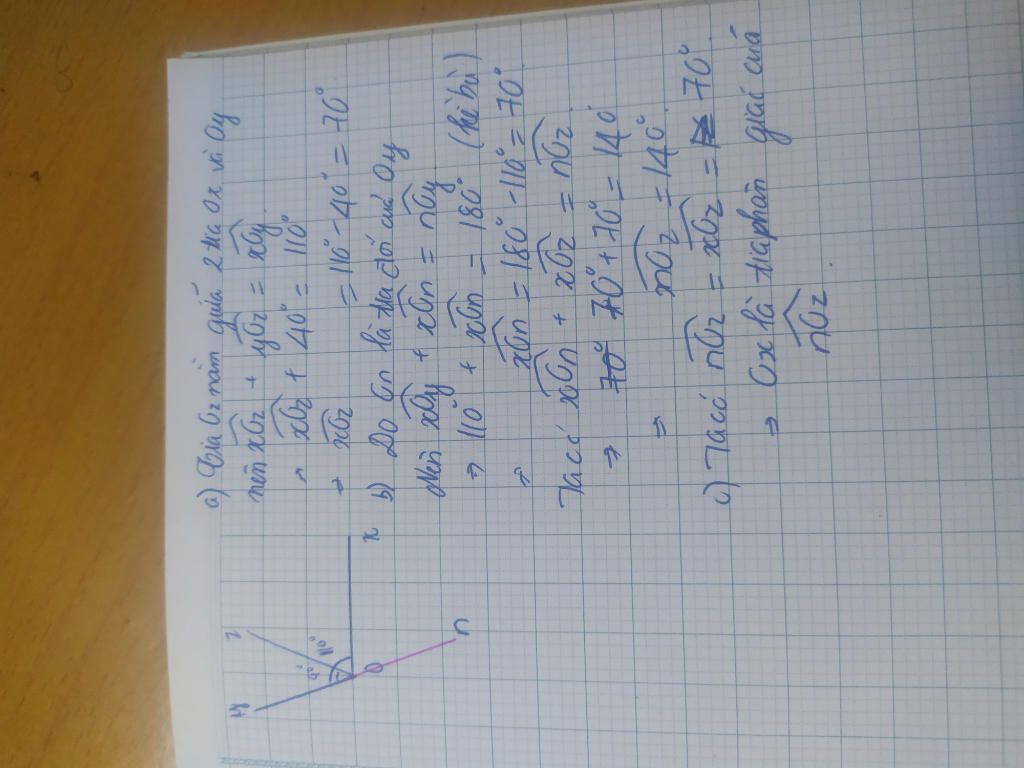 y
z
40°
110°
O
x
n
a) Tia Oz nằm giữa 2 tia Ox và Oy
nên xOz + yOz = xOy
⇒ xOz + 40° = 110°
⇒ xOz = 110° - 40° = 70°
b) Do On là tia đối của Oy
Nên xOy + xOn = nOy
⇒ 110° + xOn = 180° (kề bù)
⇒ xOn = 180° - 110° = 70°
Ta có xOn + xOz = nOz
⇒ 70° + 70° = 140°
⇒ nOz = 140°
c) Ta có nOz = xOz = 70°
⇒ Ox là tia phân giác của
nOz